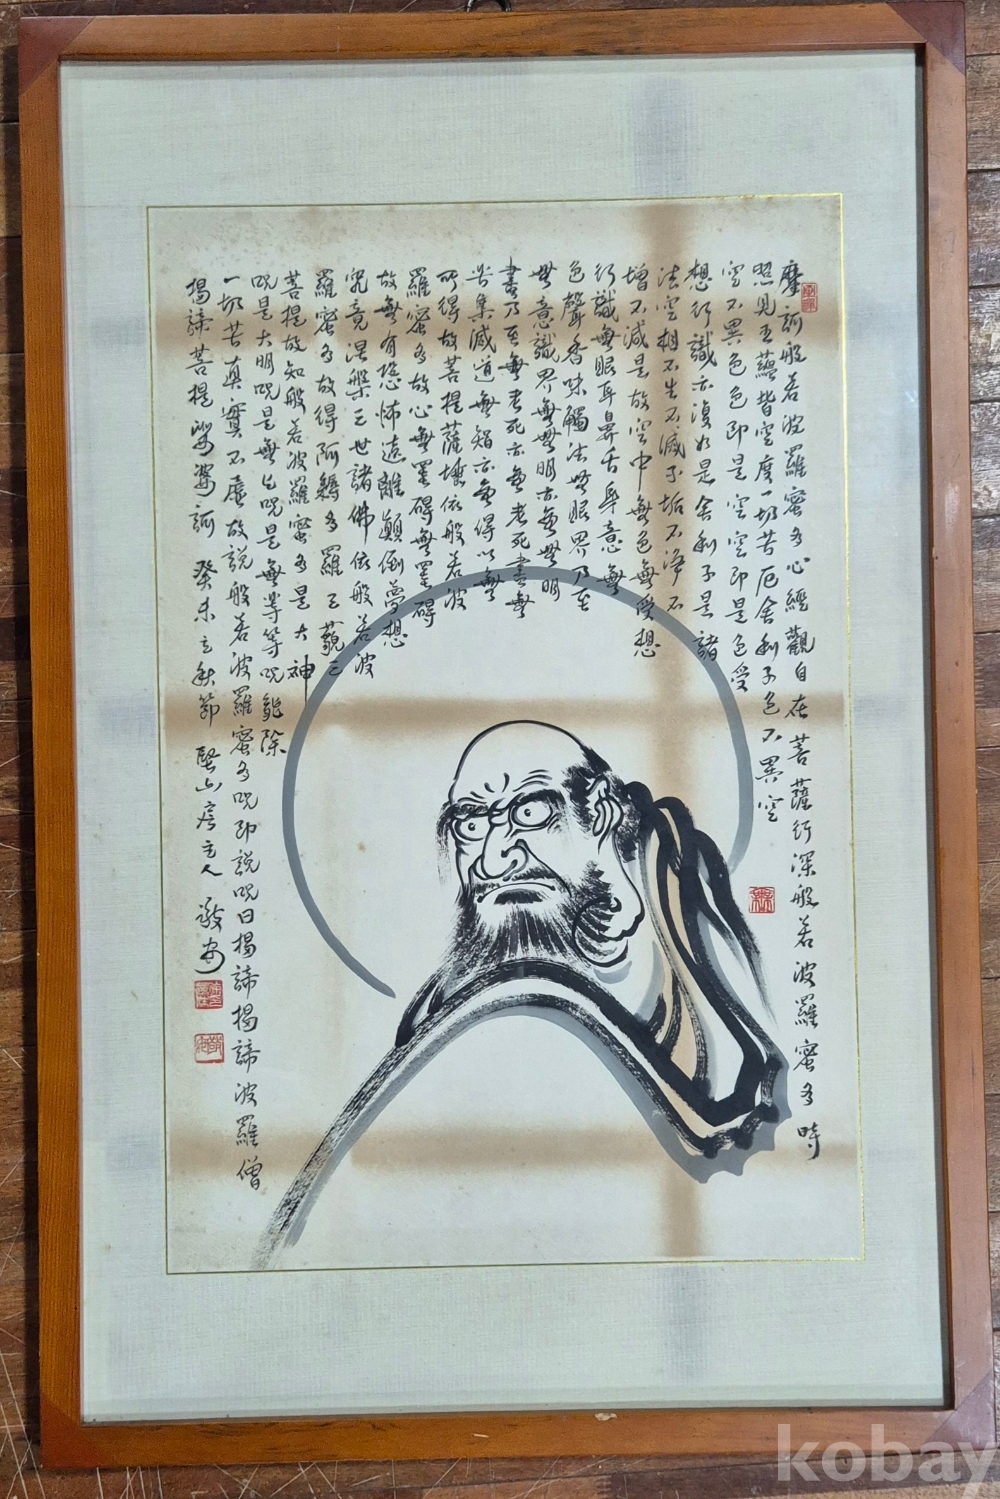 摩訶般若波羅蜜多心經觀自在菩薩行深般若波羅蜜多時
照見五蘊皆空度一切苦厄舍利子色不異空
空不異色色即是空空即是色受
想行識亦復如是舍利子是諸
法空相不生不滅不垢不淨不
增不減是故空中無色無受想
行識無眼耳鼻舌身意無
色聲香味觸法無眼界乃至
無意識界無無明亦無無明
盡乃至無老死亦無老死盡無
苦集滅道無智亦無得以無
所得故菩提薩埵依般若波
羅蜜多故心無罣碍無罣碍
故無有恐怖遠離顛倒夢想
究竟涅槃三世諸佛依般若波
羅蜜多故得阿耨多羅三藐三
菩提故知般若波羅蜜多是大神
呪是大明呪是無上呪是無等等呪能除
一切苦真實不虛故說般若波羅蜜多呪即說呪曰揭諦揭諦波羅僧
揭諦菩提娑婆訶 癸未立秋節 主人
kobay